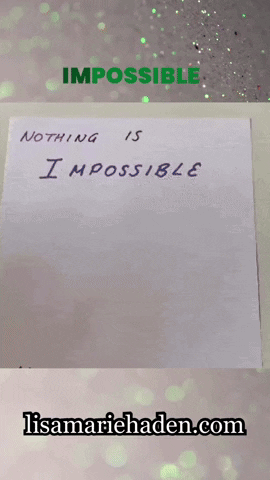 IMPOSSIBLE
NOTHING IS
IMPOSSIBLE
lisamariehaden.com